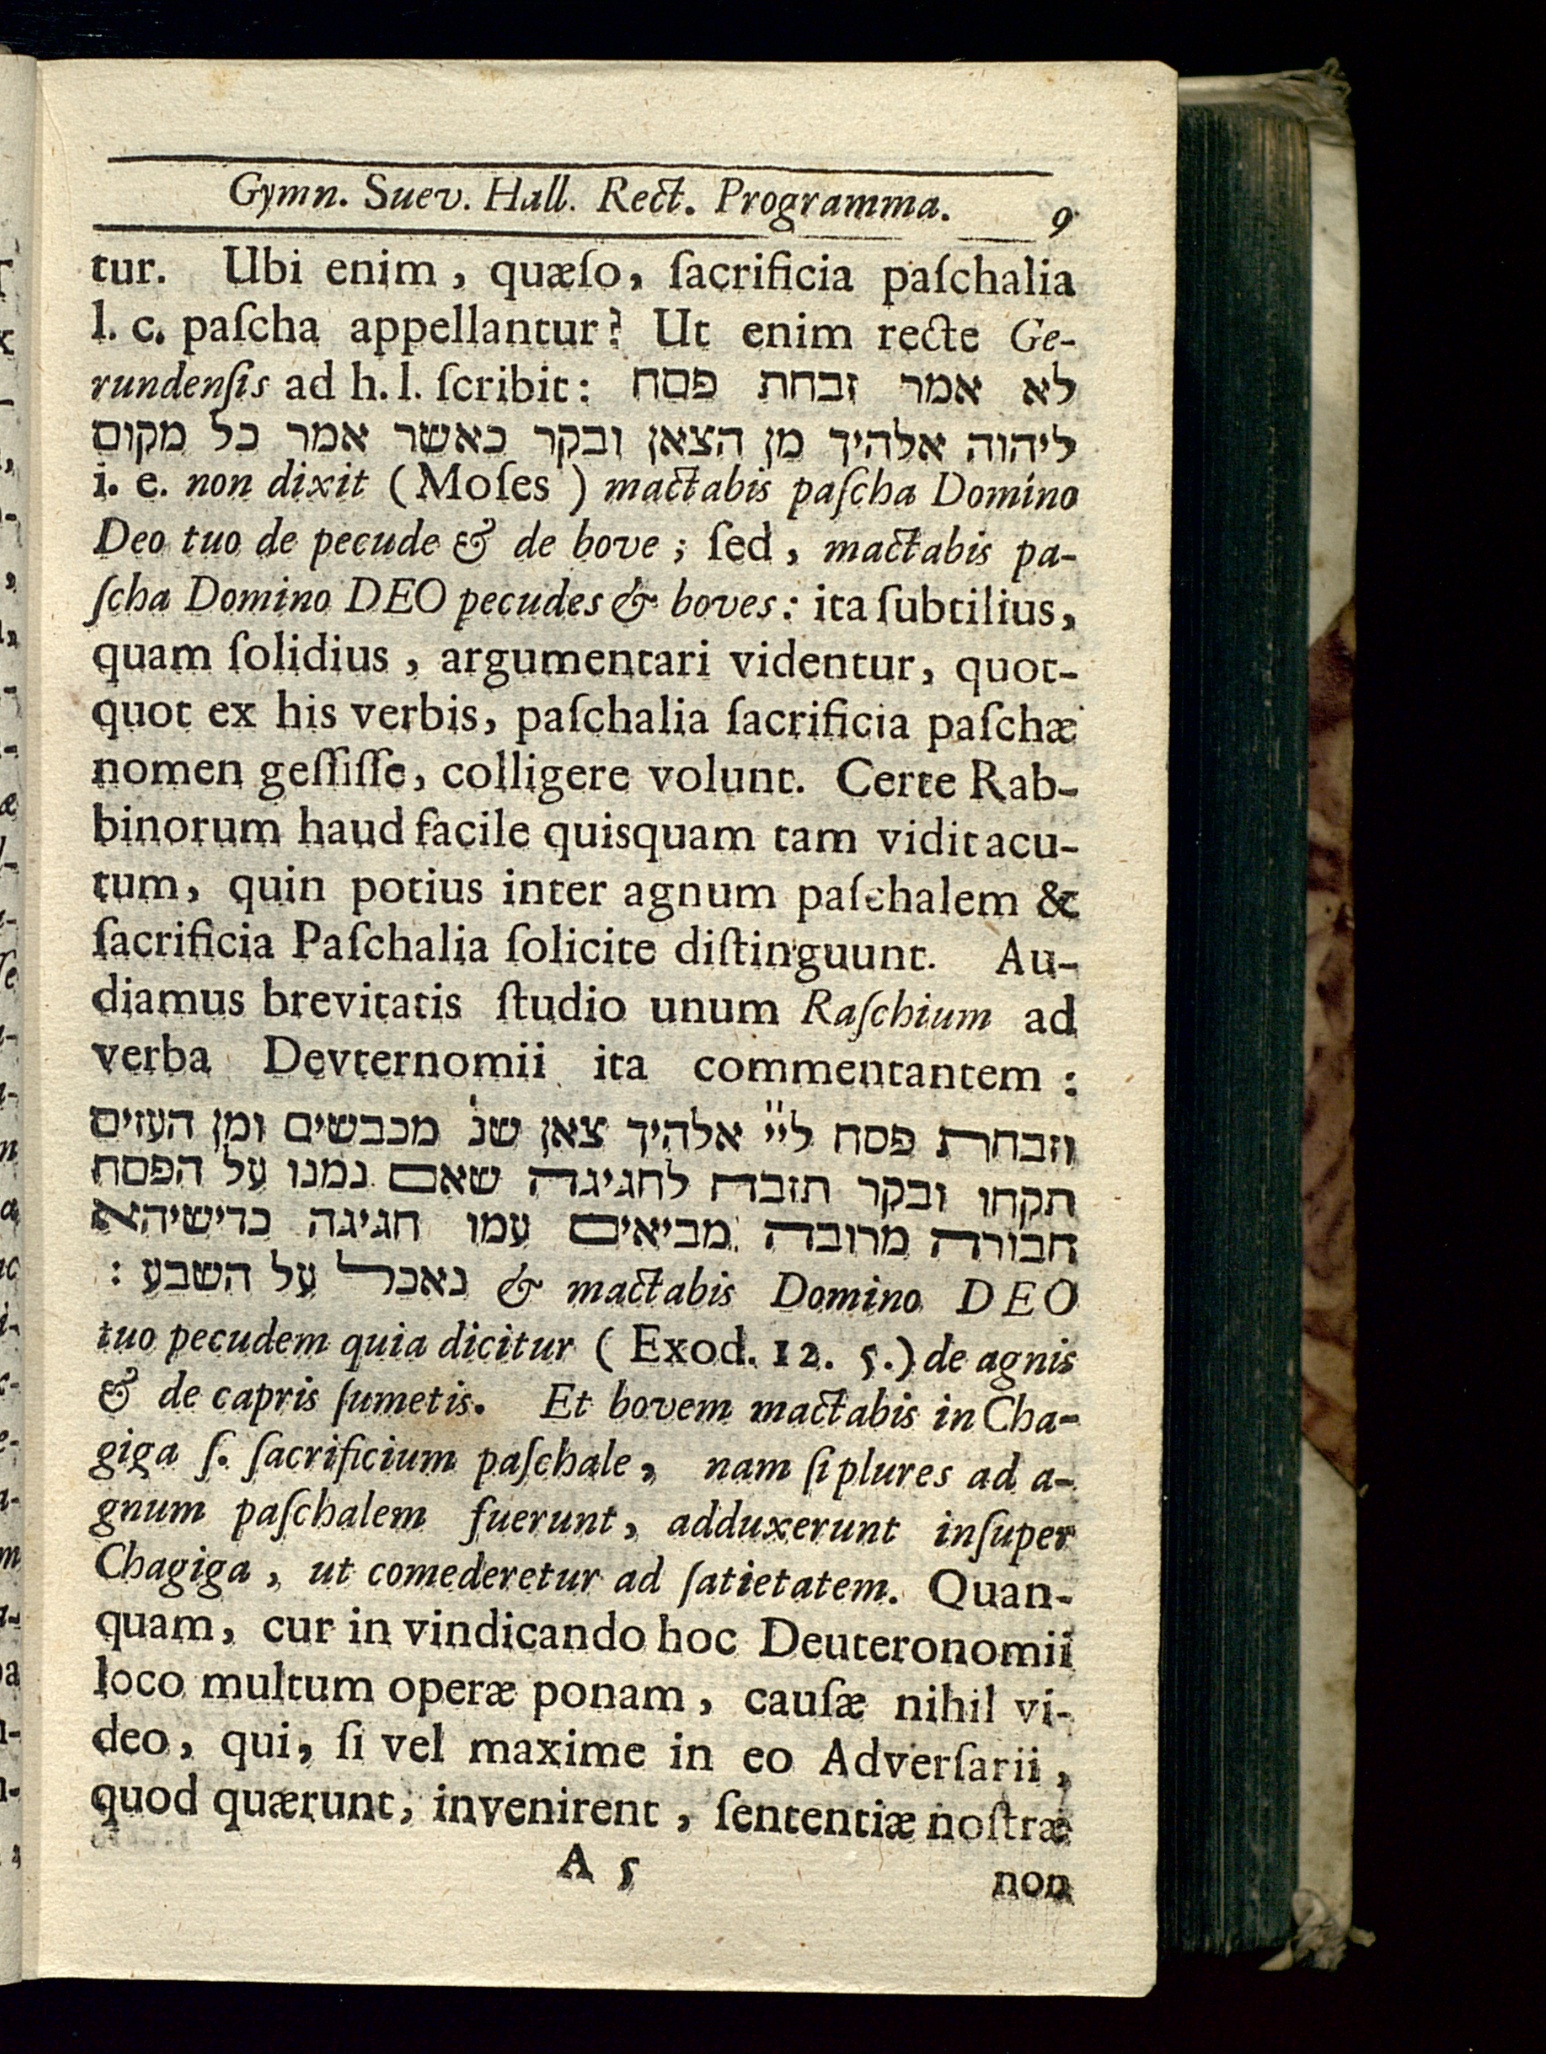 Gymn. Suev. Hall. Rect. Programma. 9
tur. Ubi enim, quæſo, ſacrificia paſchalia
l. c. paſcha appellantur? Ut enim recte Ge-
rundenſis ad h. l. ſcribit: לא אמר זבחת פסח
ליהוה אלהיך מן הצאן ובקר כאשר אמר כל מקום
i. e. non dixit (Moſes) mactabis paſcha Domino
Deo tuo de pecude & de bove; ſed, mactabis pa-
ſcha Domino DEO pecudes & boves: ita ſubtilius,
quam ſolidius, argumentari videntur, quot-
quot ex his verbis, paſchalia ſacrificia paſchæ
nomen geſſiſſe, colligere volunt. Certe Rab-
binorum haud facile quisquam tam vidit acu-
tum, quin potius inter agnum paſchalem &
ſacrificia Paſchalia ſolicite diſtinguunt. Au-
diamus brevitatis ſtudio unum Raſchium ad
verba Devternomii ita commentantem:
וזבחת פסח ליי אלהיך צאן שנ' מכבשים ומן העזים
תקחו ובקר תזבח לחגיגה שאם נמנו על הפסח
חבורה מרובה מביאים עמו חגיגה כדישיהא
נאכל על השבע: & mactabis Domino DEO
tuo pecudem quia dicitur (Exod. 12. 5.) de agnis
& de capris ſumetis. Et bovem mactabis in Cha-
giga ſ. ſacrificium paſchale, nam ſi plures ad a-
gnum paſchalem fuerunt, adduxerunt inſuper
Chagiga, ut comederetur ad ſatietatem. Quan-
quam, cur in vindicando hoc Deuteronomii
loco multum operæ ponam, cauſæ nihil vi-
deo, qui, ſi vel maxime in eo Adverſarii,
quod quærunt, invenirent, ſententiæ noſtræ
A 5 non